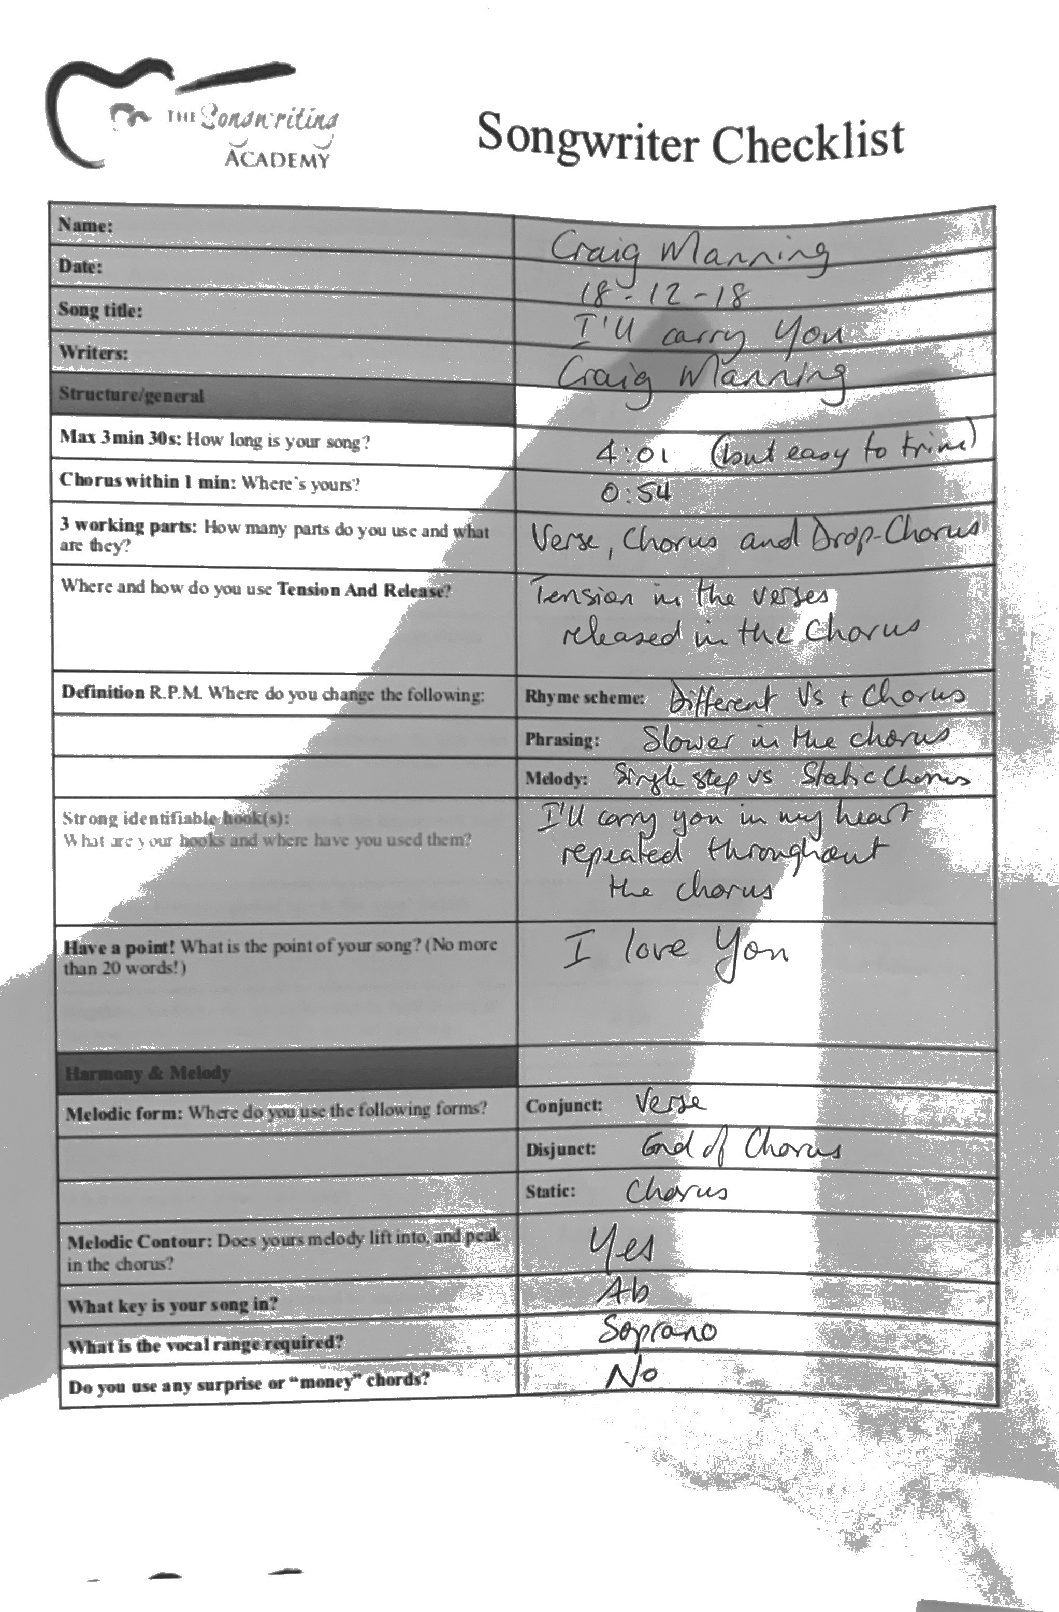 THE Songwriting
ACADEMY
Songwriter Checklist
Name:
Craig Manning
Date:
18-12-18
Song title:
I'll carry you
Writers:
Craig Manning
Structure/general
Max 3min 30s: How long is your song?
4:01 (but easy to trim)
Chorus within 1 min: Where's yours?
0:54
3 working parts: How many parts do you use and what
are they?
Verse, Chorus and Drop-Chorus
Where and how do you use Tension And Release?
Tension in the verses
released in the chorus
Definition R.P.M. Where do you change the following:
Rhyme scheme: Different Vs + Chorus
Phrasing: Slower in the chorus
Melody: Single step vs Static Chorus
Strong identifiable hook(s):
What are your hooks and where have you used them?
I'll carry you in my heart
repeated throughout
the chorus
Have a point! What is the point of your song? (No more
than 20 words!)
I love You
Harmony & Melody
Melodic form: Where do you use the following forms?
Conjunct: Verse
Disjunct: End of Chorus
Static: Chorus
Melodic Contour: Does yours melody lift into, and peak
in the chorus?
Yes
What key is your song in?
Ab
What is the vocal range required?
Soprano
Do you use any surprise or "money" chords?
No